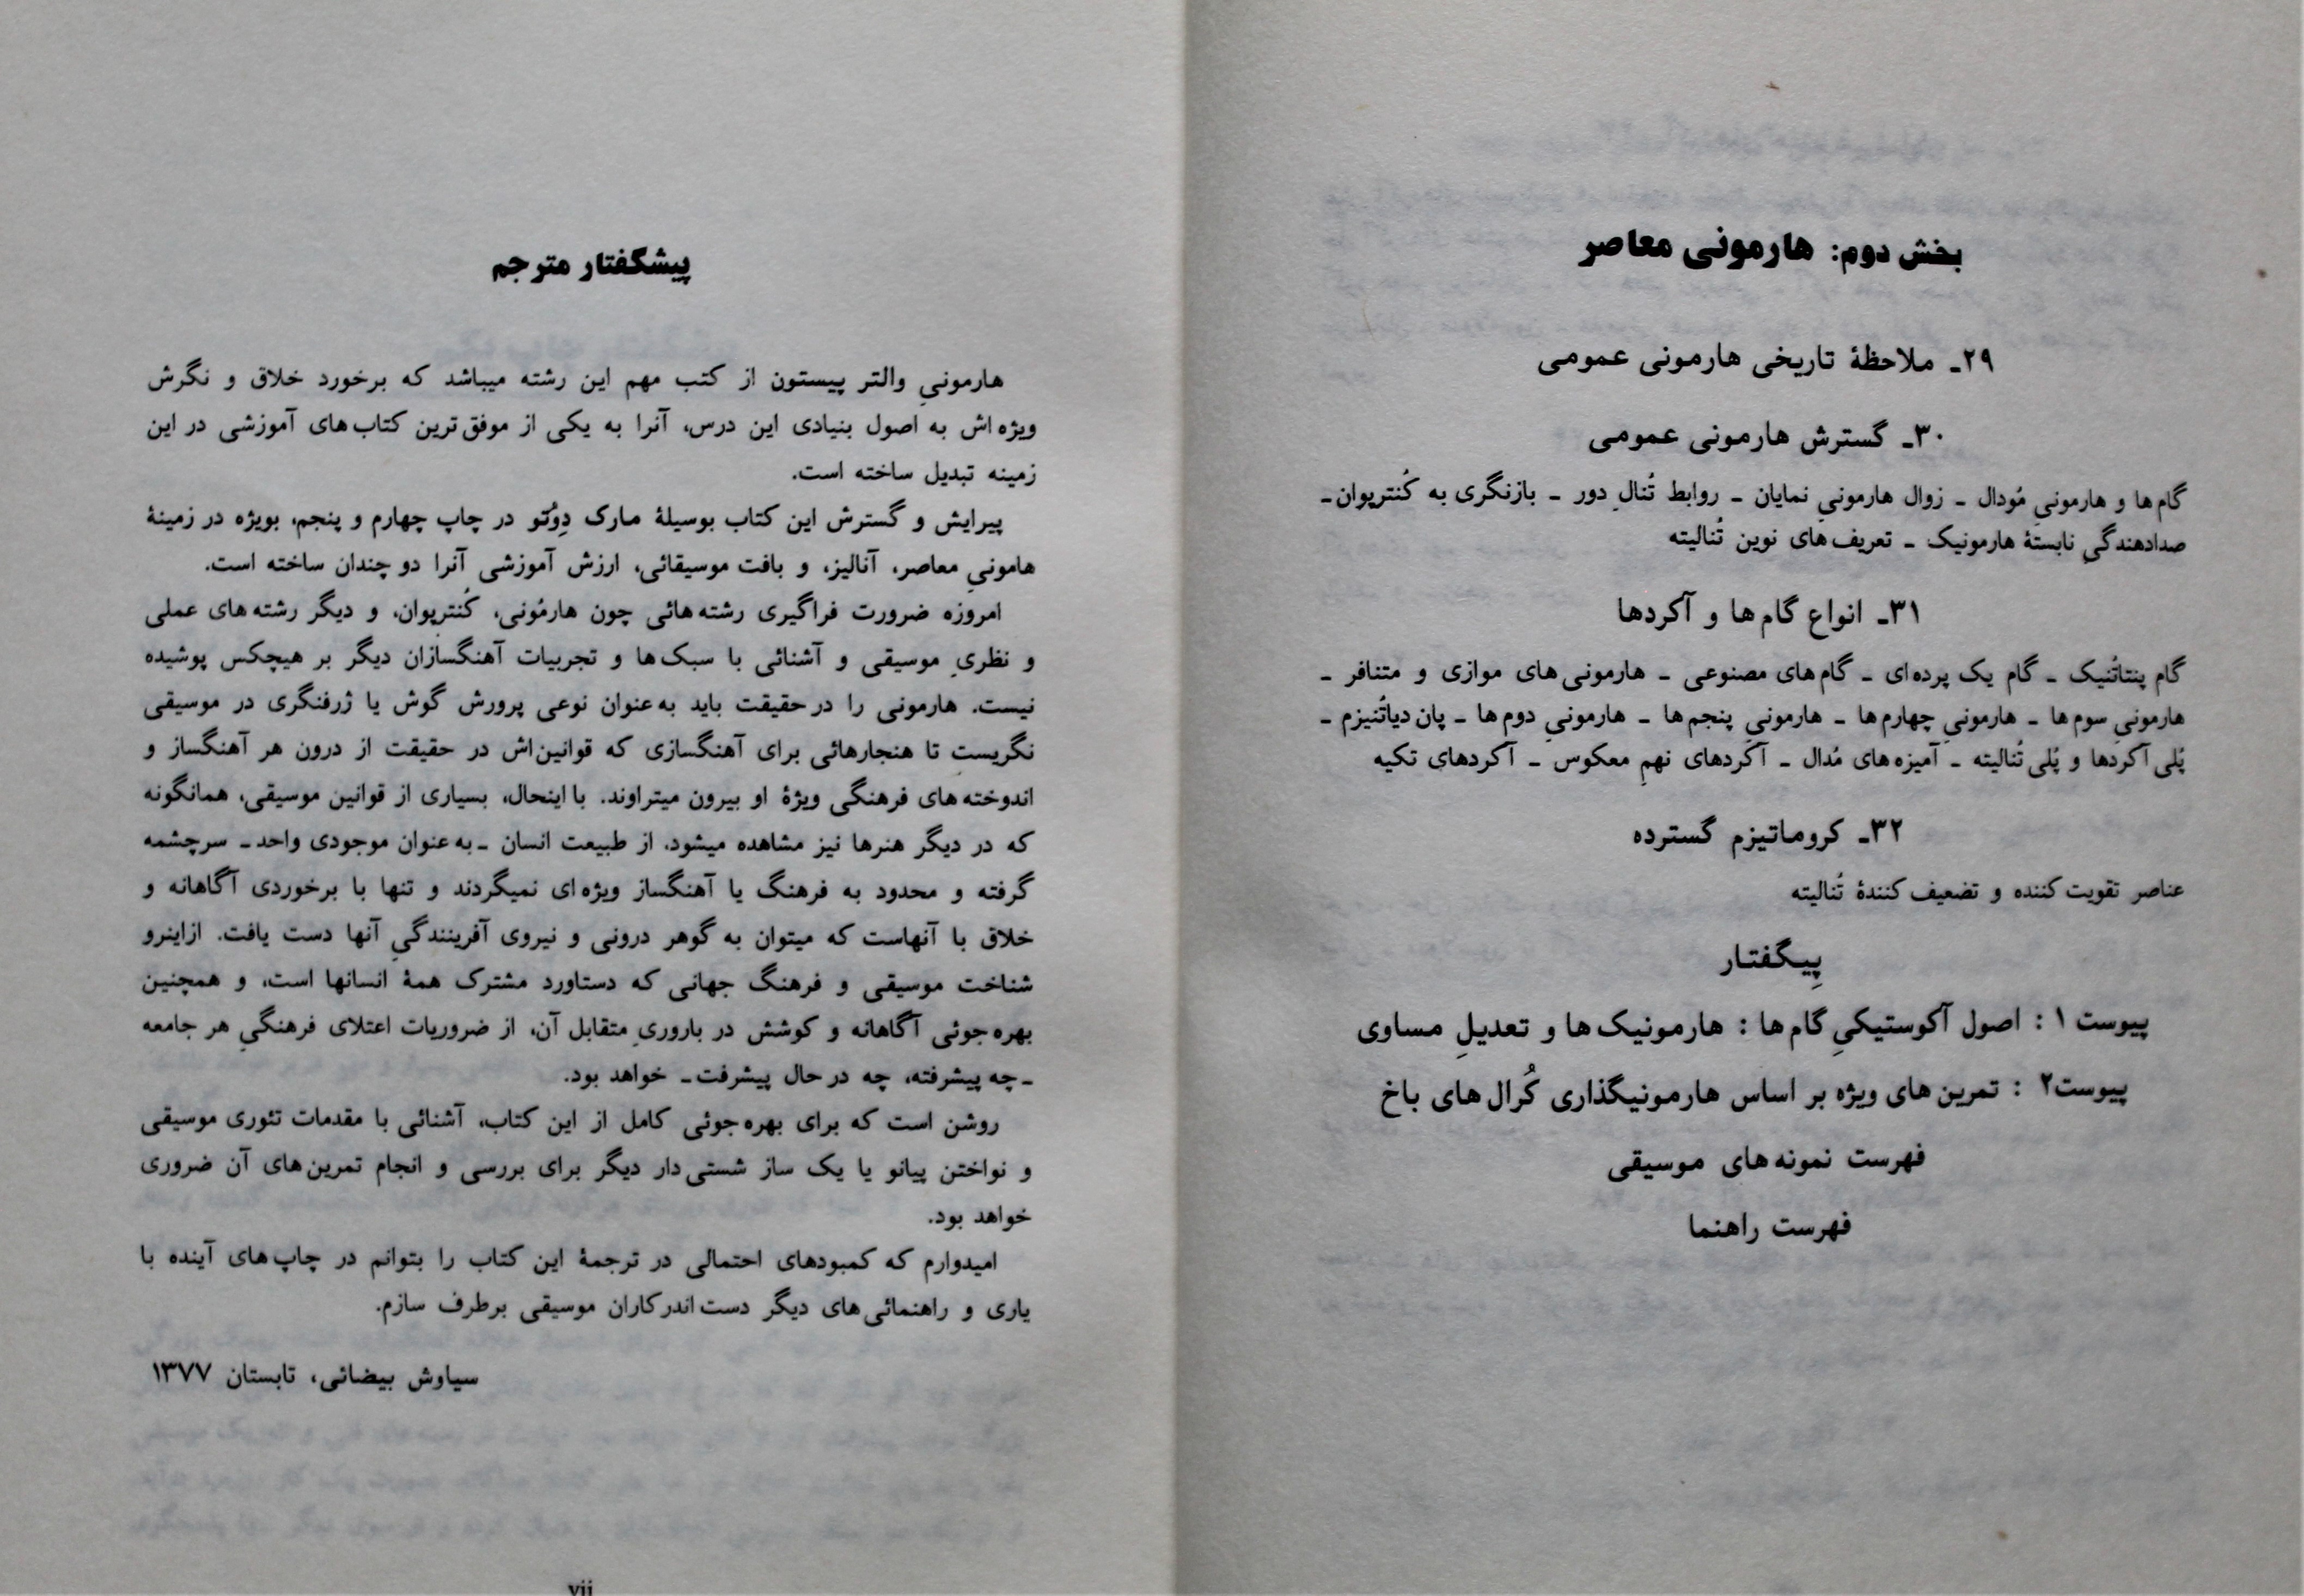 بخش دوم: هارمونی معاصر
۲۹ـ ملاحظهٔ تاریخی هارمونی عمومی
۳۰ـ گسترش هارمونی عمومی
گام ها و هارمونیِ مُودال ـ زوال هارمونیِ نمایان ـ روابط تُنالِ دور ـ بازنگری به کُنترپوان ـ
صدادهندگیِ نابستهٔ هارمونیک ـ تعریف های نوین تُنالیته
۳۱ـ انواع گام ها و آکردها
گام پنتاتُنیک ـ گام یک پرده ای ـ گام های مصنوعی ـ هارمونی های موازی و متنافر ـ
هارمونیِ سوم ها ـ هارمونیِ چهارم ها ـ هارمونیِ پنجم ها ـ هارمونیِ دوم ها ـ پان دیاتُنیزم ـ
پُلی آکردها و پُلی تُنالیته ـ آمیزه های مُدال ـ آکردهای نهمِ معکوس ـ آکردهای تکیه
۳۲ـ کروماتیزم گسترده
عناصر تقویت کننده و تضعیف کنندهٔ تُنالیته
پِیگفتار
پیوست ۱ : اصول آکوستیکیِ گام ها : هارمونیک ها و تعدیلِ مساوی
پیوست۲ : تمرین های ویژه بر اساس هارمونیگذاری کُرال های باخ
فهرست نمونه های موسیقی
فهرست راهنما
پیشگفتار مترجم
هارمونیِ والتر پیستون از کتب مهم این رشته میباشد که برخورد خلاق و نگرش
ویژه اش به اصول بنیادی این درس، آنرا به یکی از موفق ترین کتاب های آموزشی در این
زمینه تبدیل ساخته است.
پیرایش و گسترش این کتاب بوسیلهٔ مارک دِوُتو در چاپ چهارم و پنجم، بویژه در زمینهٔ
هامونیِ معاصر، آنالیز، و بافت موسیقائی، ارزش آموزشی آنرا دو چندان ساخته است.
امروزه ضرورت فراگیری رشته هائی چون هارمُونی، کُنترپوان، و دیگر رشته های عملی
و نظریِ موسیقی و آشنائی با سبک ها و تجربیات آهنگسازان دیگر بر هیچکس پوشیده
نیست. هارمونی را در حقیقت باید به عنوان نوعی پرورش گوش یا ژرفنگری در موسیقی
نگریست تا هنجارهائی برای آهنگسازی که قوانین اش در حقیقت از درون هر آهنگساز و
اندوخته های فرهنگی ویژهٔ او بیرون میتراوند. با اینحال، بسیاری از قوانین موسیقی، همانگونه
که در دیگر هنرها نیز مشاهده میشود، از طبیعت انسان ـ به عنوان موجودی واحد ـ سرچشمه
گرفته و محدود به فرهنگ یا آهنگساز ویژه ای نمیگردند و تنها با برخوردی آگاهانه و
خلاق با آنهاست که میتوان به گوهر درونی و نیروی آفرینندگیِ آنها دست یافت. ازاینرو
شناخت موسیقی و فرهنگ جهانی که دستاورد مشترک همهٔ انسانها است، و همچنین
بهره جوئی آگاهانه و کوشش در باروریِ متقابل آن، از ضروریات اعتلای فرهنگیِ هر جامعه
ـ چه پیشرفته، چه در حال پیشرفت ـ خواهد بود.
روشن است که برای بهره جوئی کامل از این کتاب، آشنائی با مقدمات تئوری موسیقی
و نواختن پیانو یا یک ساز شستی دار دیگر برای بررسی و انجام تمرین های آن ضروری
خواهد بود.
امیدوارم که کمبودهای احتمالی در ترجمهٔ این کتاب را بتوانم در چاپ های آینده با
یاری و راهنمائی های دیگر دست اندرکاران موسیقی برطرف سازم.
سیاوش بیضائی، تابستان ۱۳۷۷
vii